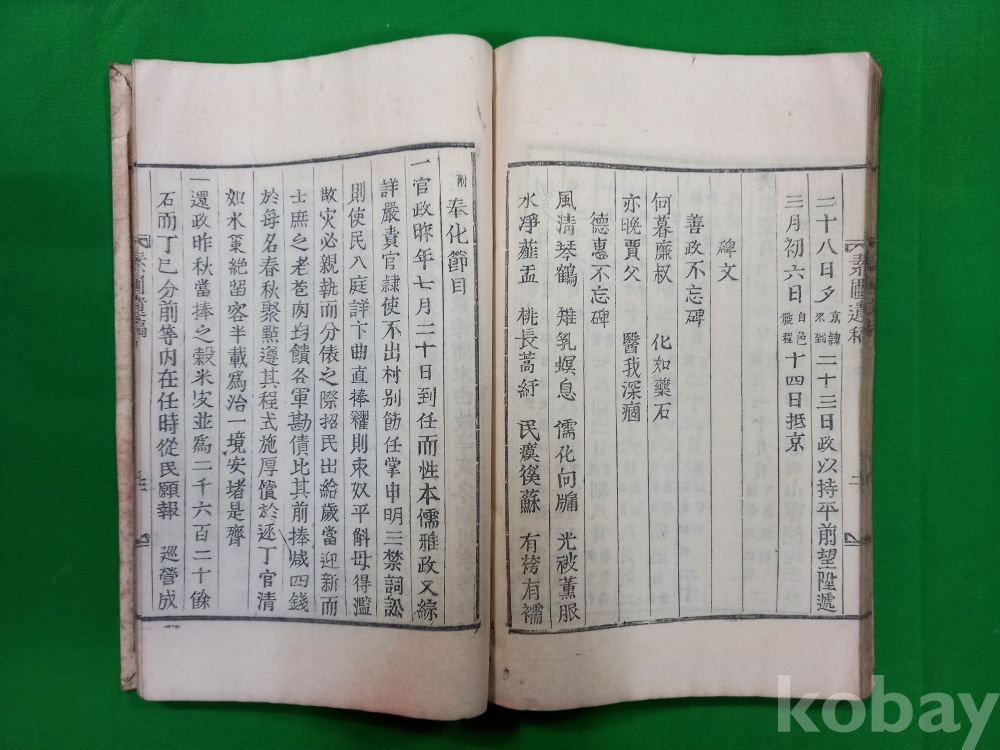 二十八日夕京隷來到二十三日政以持平前望陞遞
三月初六日自邑發程十四日抵京
碑文
善政不忘碑
何暮廉叔 化如藥石
亦晚賈父 醫我深痼
德惠不忘碑
風清琴鶴 雉乳螟息 儒化向牖 光被薰服
水凈薤盂 桃長蒿紆 民瘼徯蘇 有袴有襦
素圃遺稿
附 奉化節目
一官政昨年七月二十日到任而性本儒雅政又綜
詳嚴責官隷使不出村別飭任掌申明三禁詞訟
則使民入庭詳卞曲直捧糴則束奴平斛毋得濫
散灾必親執而分俵之際招民出給歲當迎新而
士庶之老耄肉均饋各軍勘債比其前捧減四錢
於每名春秋聚點遵其程式施厚儥於逐丁官清
如水稟絶留客半載爲治一境安堵是齊
一還政昨秋當捧之穀米皮並爲二千六百二十餘
石而丁巳分前等内在任時從民願報 巡營成
kobay